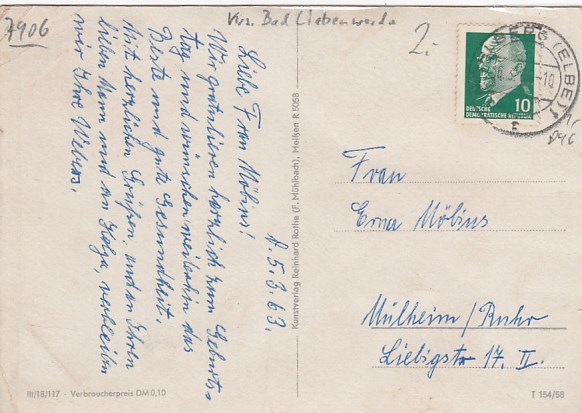 7906
Krs. Bad Liebenwerda
2.-
A. 5.3.63.
Liebe Frau Möbius!
Wir gratulieren herzlich zum Geburts-
tag und wünschen weiterhin das
Beste und gute Gesundheit.
Mit herzlichen Grüßen, und an Ihren
lieben Mann und an Helga, verbleiben
wir Ihre Webers.
Kunstverlag Reinhard Rothe (F. Mühlbach), Meißen R 5058
DEUTSCHE
DEMOKRATISCHE REPUBLIK
10
(ELBE)
Frau
Erna Möbius
Mülheim/Ruhr
Liebigstr 17. II.
III/18/117 - Verbraucherpreis DM 0,10
T 154/58